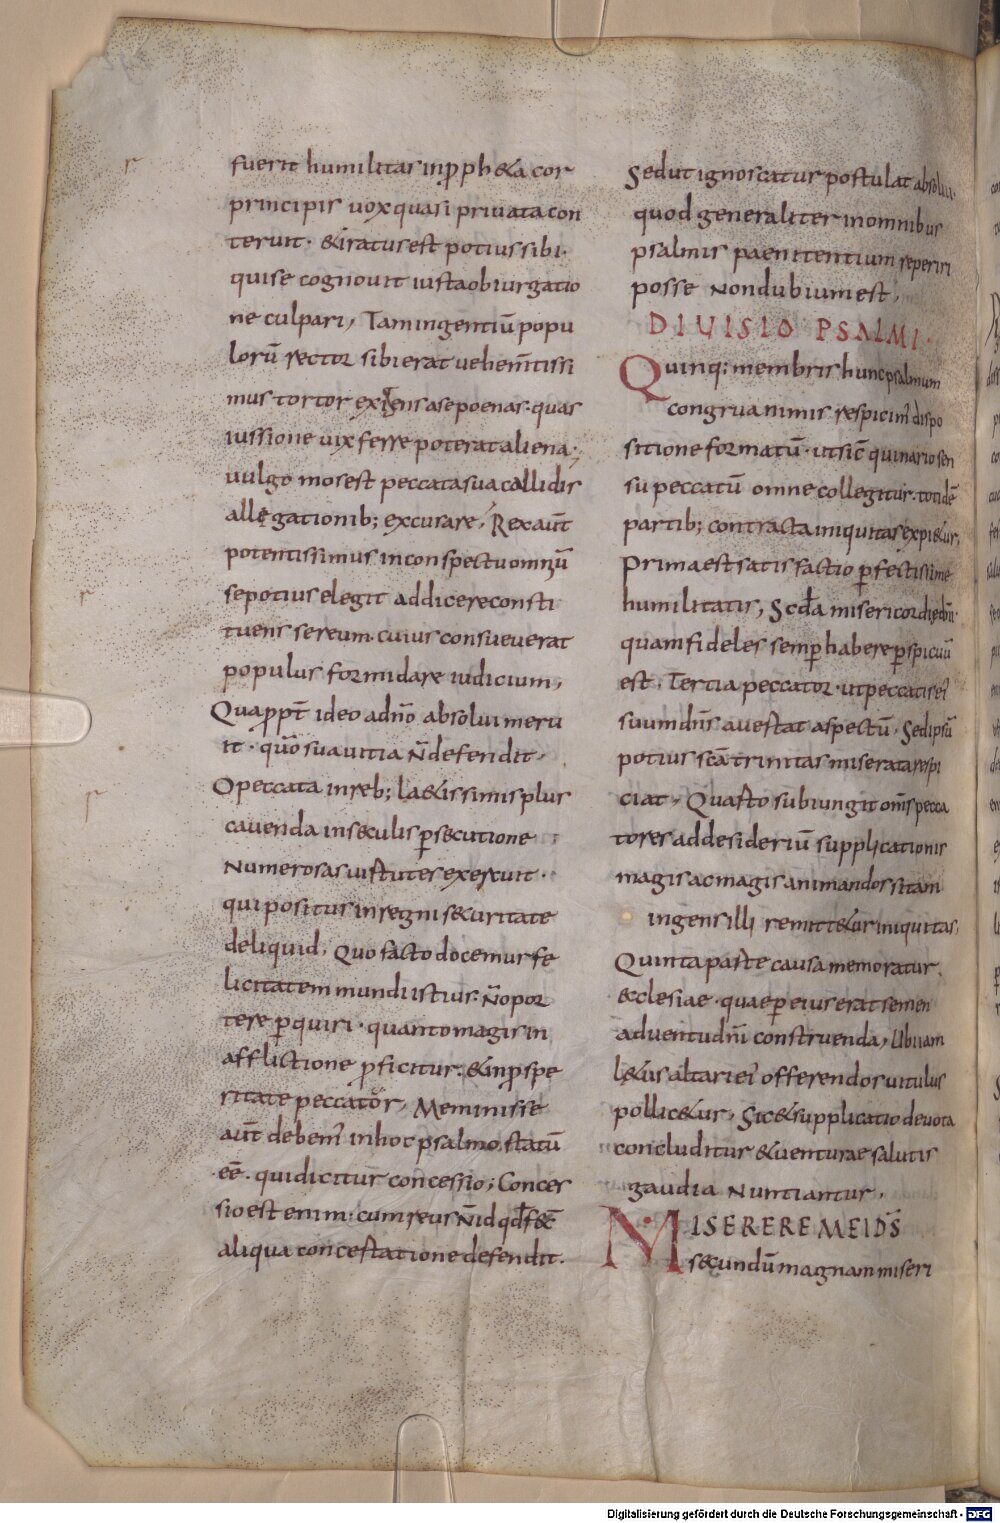 fuerit humilitas inp̱ph&a cor
principis uox quasi priuata con
teruit· &iratus est potius sibi·
qui se cognouit iusta obiurgatio
ne culpari, Tam ingentiū popu
lorū rector sibi erat uehem̄tissi
mus tortor exigens a se poenas· quas
iussione uix ferre poterat aliena·,
uulgo mos est peccata sua callidis
allegationib; excusare, Rex aūt
potentissimus in conspectu omniū
se potius elegit addicere consti
tuens se reum· cuius consueuerat
populus formidare iudicium,
Quapp̄t ideo adn̄o absolui meru
it· qūo sua uitia n̄ defendit,
O peccata in reb; la&issimis plus
cauenda in seculis p̱secutione
Numerosas uirtutes exercuit·
qui positus in regni se&uritate
deliquid, Quo facto docemur fe
licitatem mundi istius n̄ opor
tere p̱quiri· quanto magis in
afflictione p̱ficitur· & inp̱spe
ritate peccatōr, Meminisse
aūt debem' in hoc psalmo statū
eē· qui dicitur concessio; Conces
sio est enim· cum reus n̄ id qđ fec̄
aliqua concertatione defendit·
Sed ut ignoscatur postulat absolui·
quod generaliter in omnibus
psalmis paenitentium reperiri
posse Non dubium est,
DIUISIO PSALMI·
Quinq; membris hunc psalmum
congrua nimis respicim' dispo
sitione formatū· ut sic̄ quinario sen
su peccatū omne collegitur· totidē
partib; contracta iniquitas expi&ur,
Prima est satisfactio p̱fectissime
humilitatis, Scđa misericordie dn̄i·
quam fideles semp̱ habere p̱spicuū
est, Tertia peccator· ut peccatis ei'
suum dn̄s auertat aspectū· Sed ipsū
potius sc̄a trinitas miserata respi
ciat, Quarto subiungit om̄s pecca
tores ad desideriū supplicationis
magis ac magis animandos si tam
ingens illi remitt&ur iniquitas,
Quinta parte causa memoratur
&clesiae· quae p̱ eius erat semen
aduentu dn̄i construenda, Ubi iam
l&iis altari ei' offerendos uitulus
pollic&ur, Sic & supplicatio deuota
concluditur & uenturae salutis
gaudia Nuntiantur,
MISERERE MEI D̄S
secundū magnam miseri
Digitalisierung gefördert durch die Deutsche Forschungsgemeinschaft - DFG